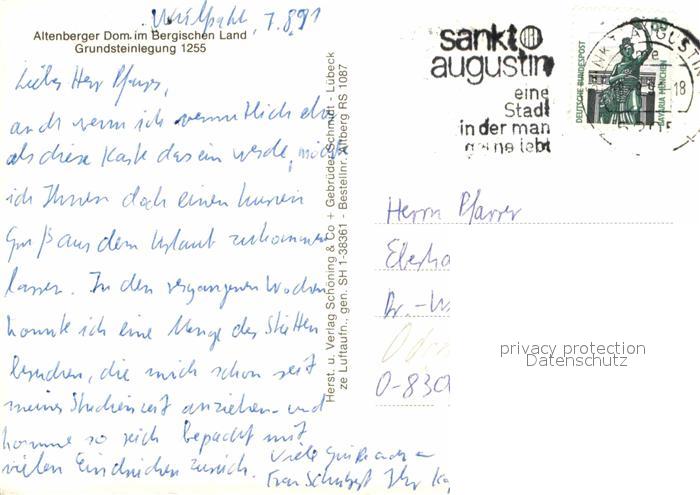 7.8.91
Altenberger Dom im Bergischen Land
Grundsteinlegung 1255
Lieber Herr Pfarrer,
auch wenn ich vermutlich eher
als diese Karte da sein werde, möchte
ich Ihnen doch einen kurzen
Gruß aus dem Urlaub zukommen
lassen. In den vergangenen Wochen
konnte ich eine Menge der Stätten
besuchen, die mich schon seit
meiner Studienzeit anziehen - und
komme so reich bepackt mit
vielen Eindrücken zurück.
Viele Grüße auch an
Frau Schubert Ihr
Herst. u. Verlag Schöning & Co + Gebrüder Schmidt - Lübeck
ze Luftaufn., gen. SH 1-38361 - Bestellnr. Altberg RS 1087
sankt
augustin
eine
Stadt
in der man
gerne lebt
DEUTSCHE BUNDESPOST
60
BAVARIA MÜNCHEN
SANKT AUGUSTIN
-18
Herrn Pfarrer
Eberha
Dr.-W
O-830
privacy protection
Datenschutz